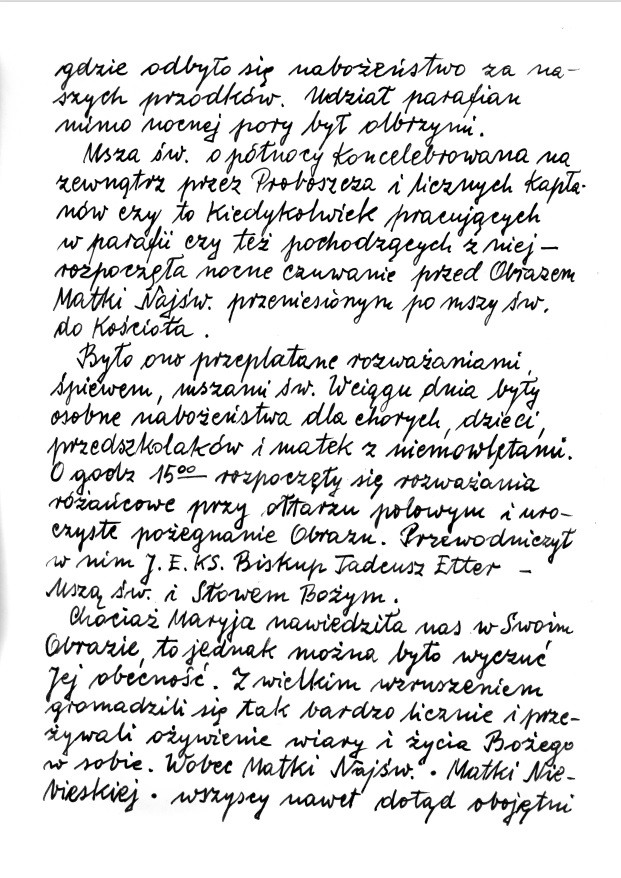 gdzie odbyło się nabożeństwo za na-
szych przodków. Udział parafian
mimo nocnej pory był olbrzymi.
Msza św. o północy koncelebrowana na
zewnątrz przez Proboszcza i licznych Kapła-
nów czy to kiedykolwiek pracujących
w parafii czy też pochodzących z niej —
rozpoczęła nocne czuwanie przed Obrazem
Matki Najśw. przeniesionym po mszy św.
do Kościoła.
Było ono przeplatane rozważaniami,
śpiewem, mszami św. W ciągu dnia były
osobne nabożeństwa dla chorych, dzieci,
przedszkolaków i matek z niemowlętami.
O godz 15⁰⁰ rozpoczęły się rozważania
różańcowe przy ołtarzu polowym i uro-
czyste pożegnanie Obrazu. Przewodniczył
w nim J.E.KS. Biskup Tadeusz Etter —
Mszą św. i Słowem Bożym.
Chociaż Maryja nawiedziła nas w Swoim
Obrazie, to jednak można było wyczuć
Jej obecność. Z wielkim wzruszeniem
gromadzili się tak bardzo licznie i prze-
żywali ożywienie wiary i życia Bożego
w sobie. Wobec Matki Najśw. • Matki Nie-
bieskiej • wszyscy nawet dotąd obojętni